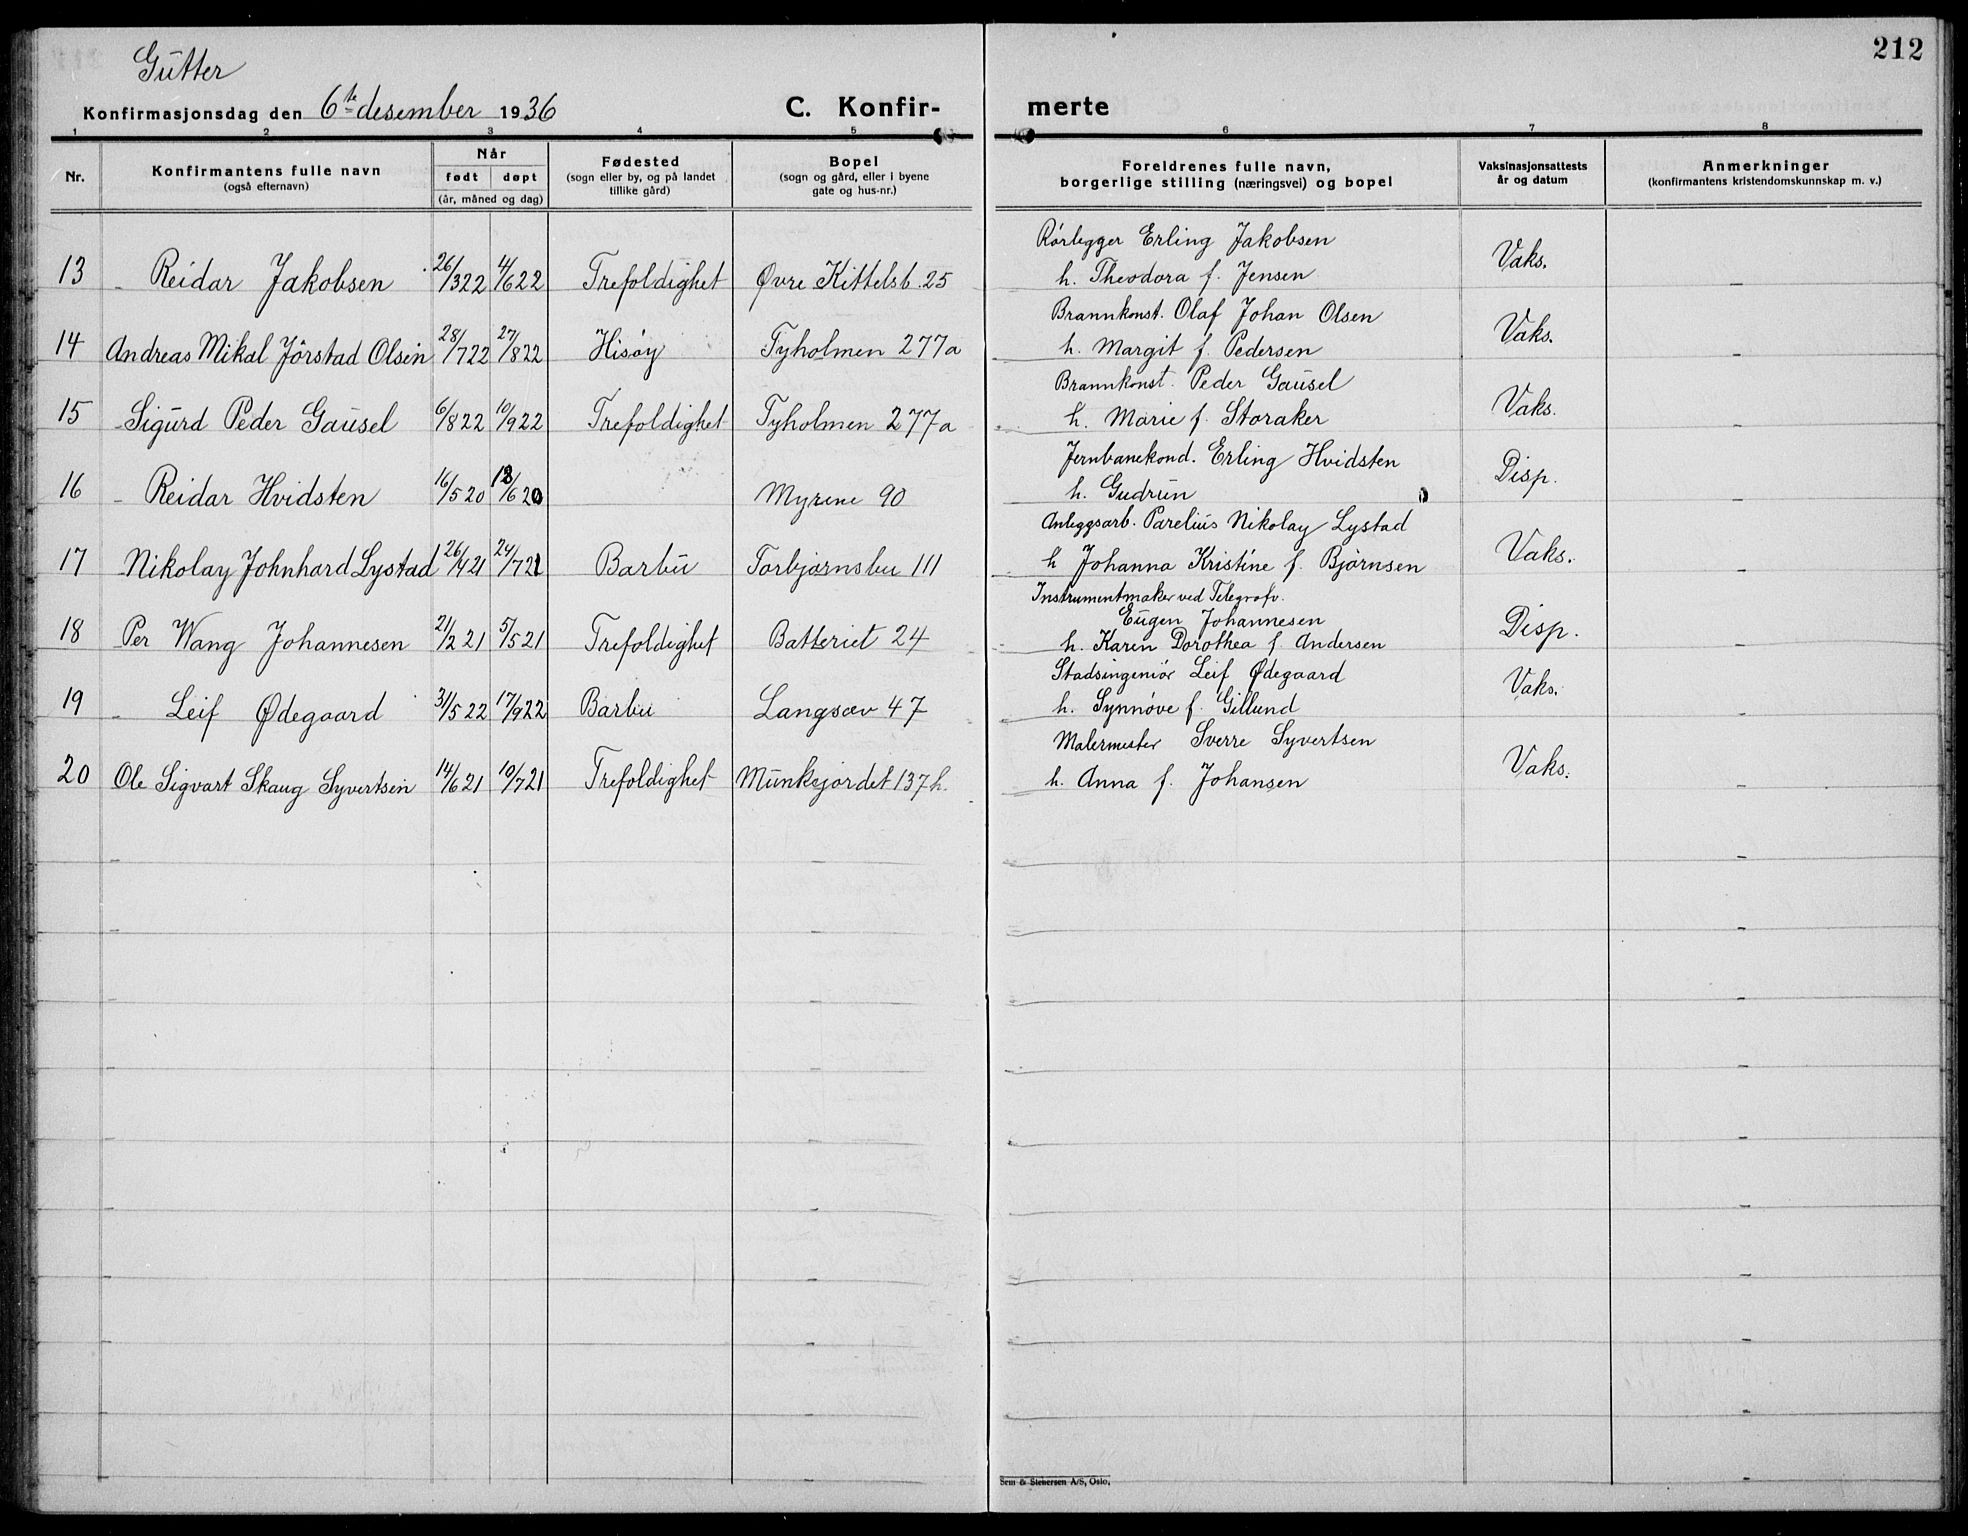 212
Gutter
Konfirmasjonsdag den 6te desember 1936 C. Konfir- merte
1 2 3 4 5 6 7 8
Nr. Konfirmantens fulle navn (også efternavn) Når født døpt (år, måned og dag) Fødested (sogn eller by, og på landet tillike gård) Bopel (sogn og gård, eller i byene gate og hus-nr.) Foreldrenes fulle navn, borgerlige stilling (næringsvei) og bopel Vaksinasjonsattests år og datum Anmerkninger (konfirmantens kristendomskunnskap m. v.)
Rørlegger Erling Jakobsen
13 Reidar Jakobsen 26/3 22 4/6 22 Trefoldighet Øvre Kittelsb. 25 h. Theodora f. Jensen Vaks.
Brannkonst. Olaf Johan Olsen
14 Andreas Mikal Jørstad Olsen 28/7 22 27/8 22 Hisøy Tyholmen 277a h. Margit f. Pedersen Vaks.
Brannkonst. Peder Gausel
15 Sigurd Peder Gausel 6/8 22 10/9 22 Trefoldighet Tyholmen 277a h. Marie f. Storaker Vaks.
Jernbanekond. Erling Hvidsten
16 Reidar Hvidsten 16/5 20 /6 20 Myrene 90 h. Gudrun Disp.
Anleggsarb. Parelius Nikolay Lystad
17 Nikolay Johnhard Lystad 26/4 21 24/7 21 Barbu Torbjørnsbu 111 h Johanna Kristine f. Bjørnsen Vaks.
Instrumentmaker ved Telegrafv.
Eugen Johannesen
18 Per Wang Johannesen 21/2 21 5/5 21 Trefoldighet Batteriet 24 h. Karen Dorothea f. Andersen Disp.
Stadsingeniør Leif Ødegaard
19 Leif Ødegaard 31/5 22 17/9 22 Barbu Langsæv 47 h. Synnøve f. Gillund Vaks.
Malermester Sverre Syvertsen
20 Ole Sigvart Skaug Syvertsen 14/6 21 10/7 21 Trefoldighet Munkejordet 137 h. h. Anna f. Johansen Vaks.
Sem & Stenersen A/S, Oslo.